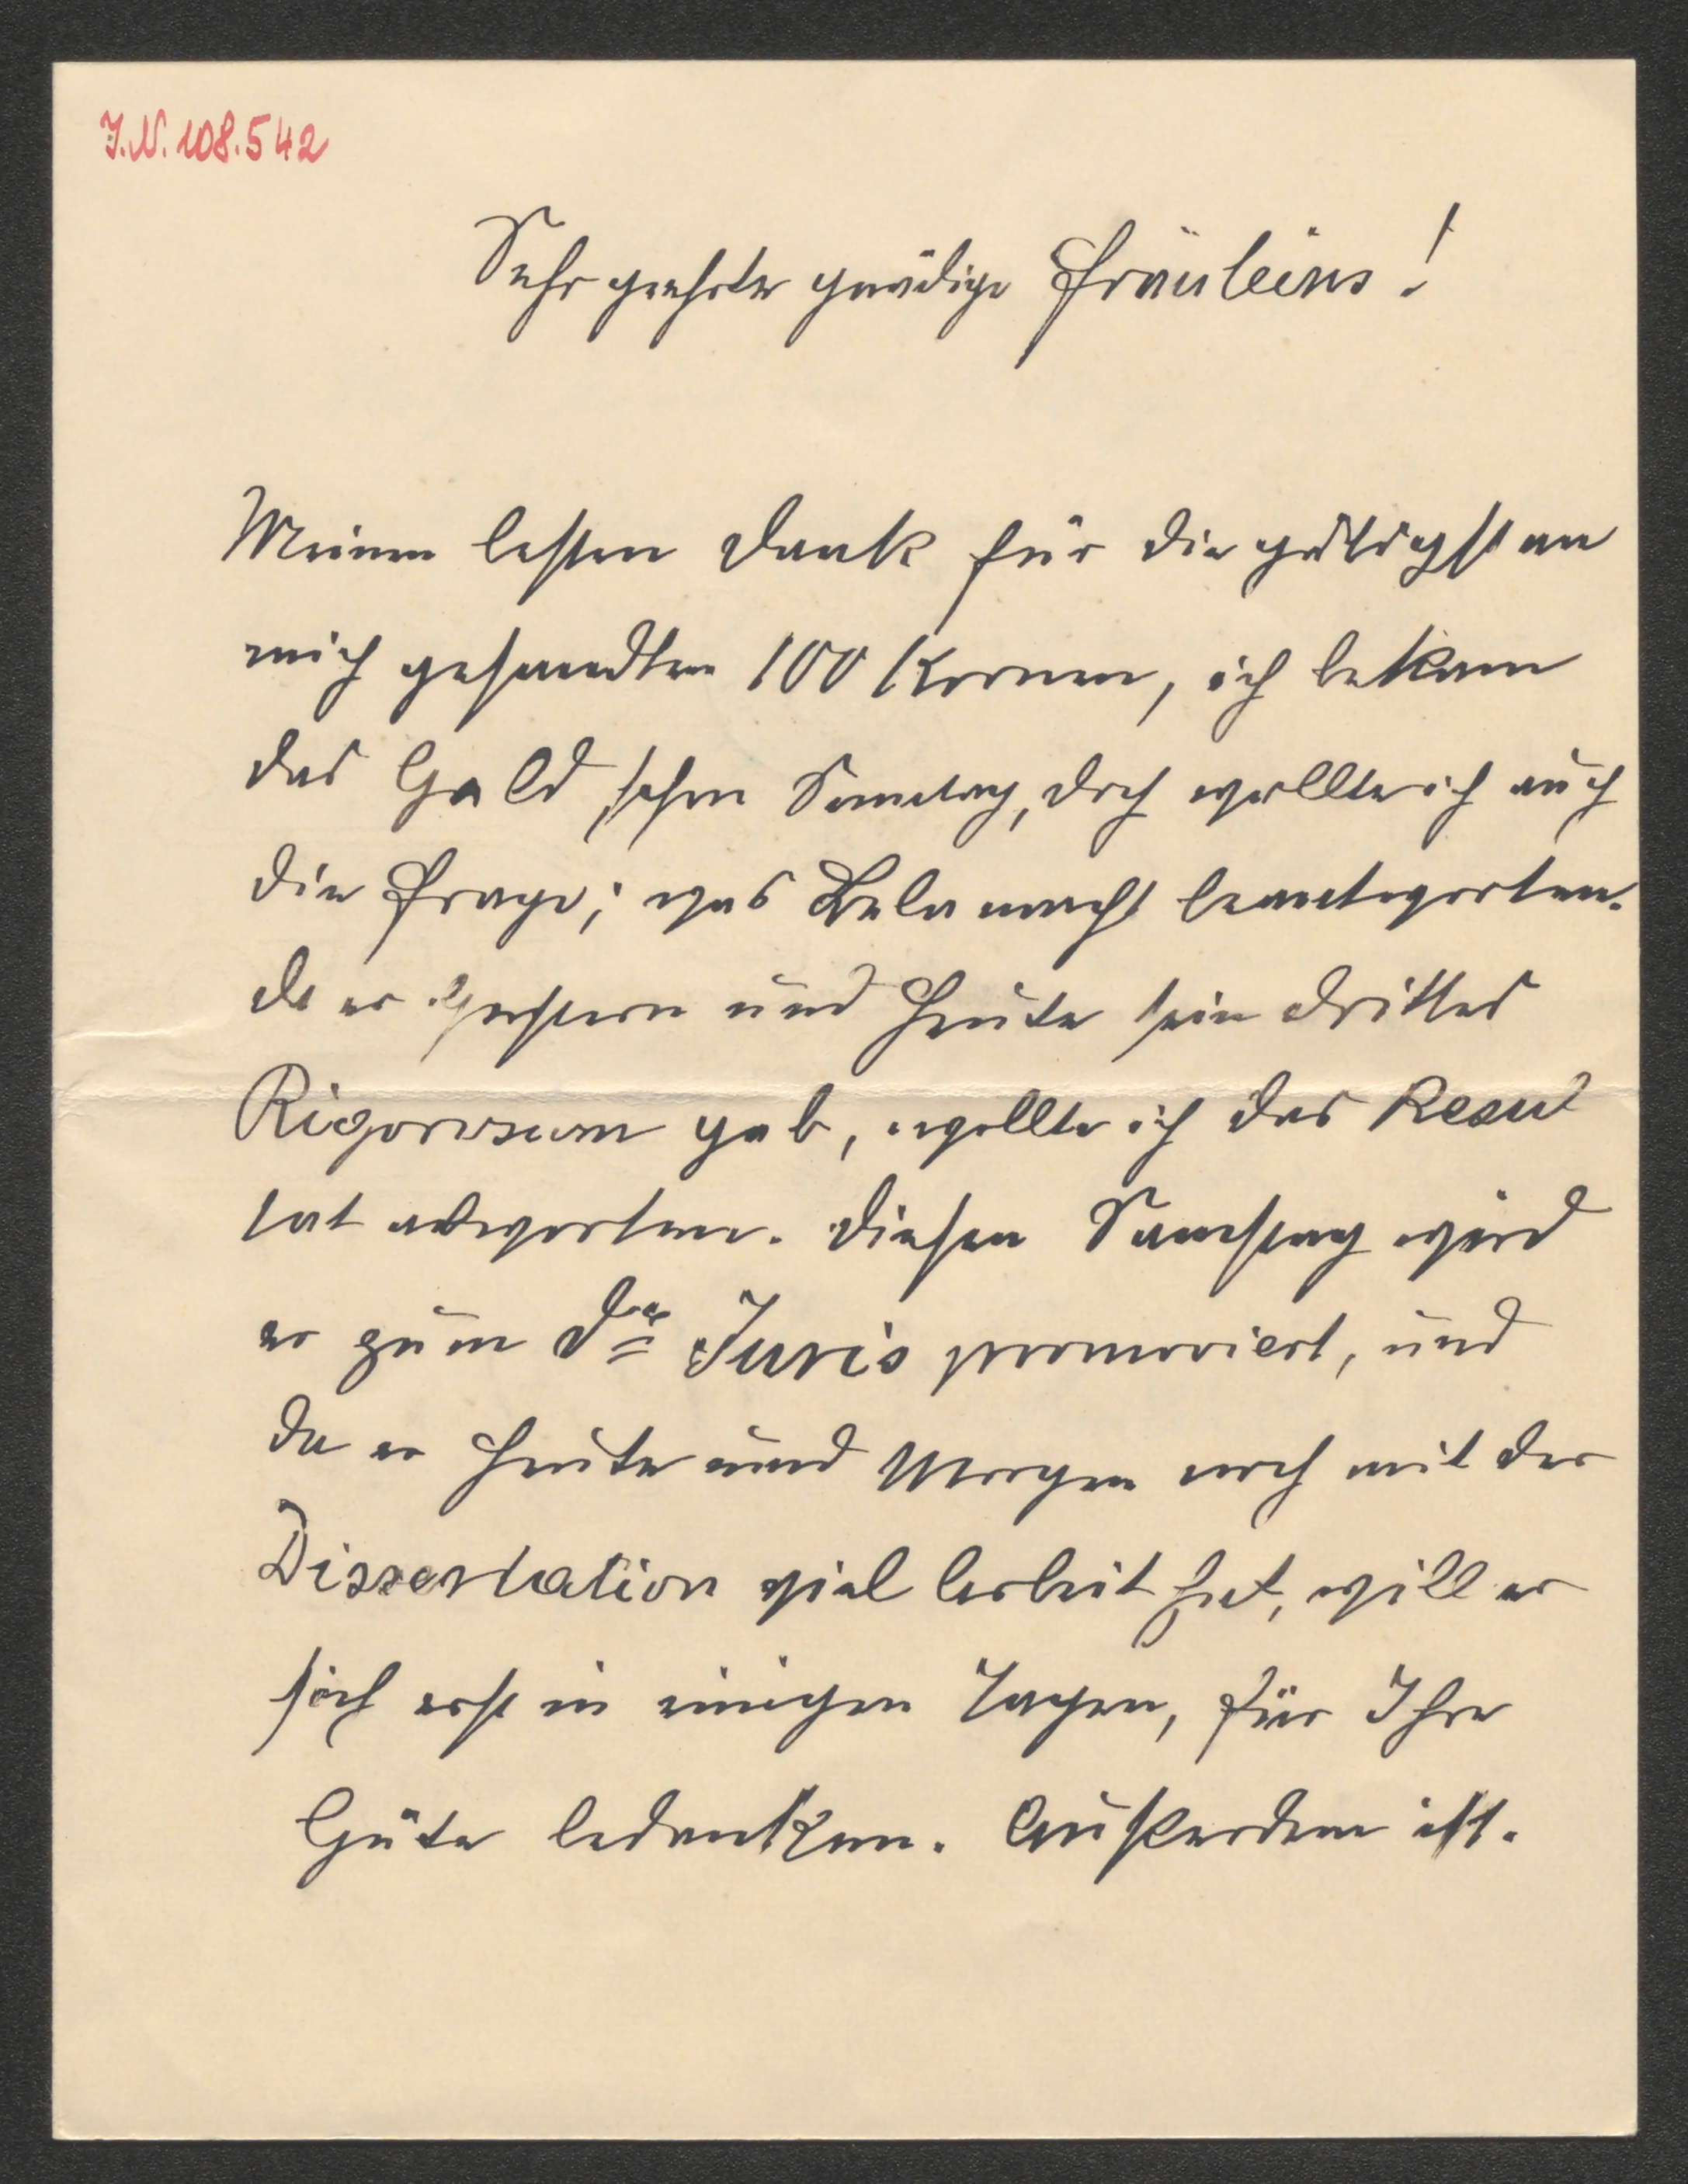 J.N. 108.542
Sehr geehrte gnädige Fräuleins!
Meinen besten Dank für die gütigst an
mich gesandten 100 Kronen, ich bekam
das Geld schon Sonntag, doch wollte ich auch
die Frage; was Bela macht beantworten.
da er Gestern und Heute sein drittes
Rigorosum gab, wollte ich das Resul
tat abwarten. Diesen Samstag wird
er zum Dr Juris promoviert, und
da er Heute und Morgen noch mit der
Dissertation viel Arbeit hat, will er
sich erst in einigen Tagen, für Ihre
Güte bedanken. Außerdem ist.